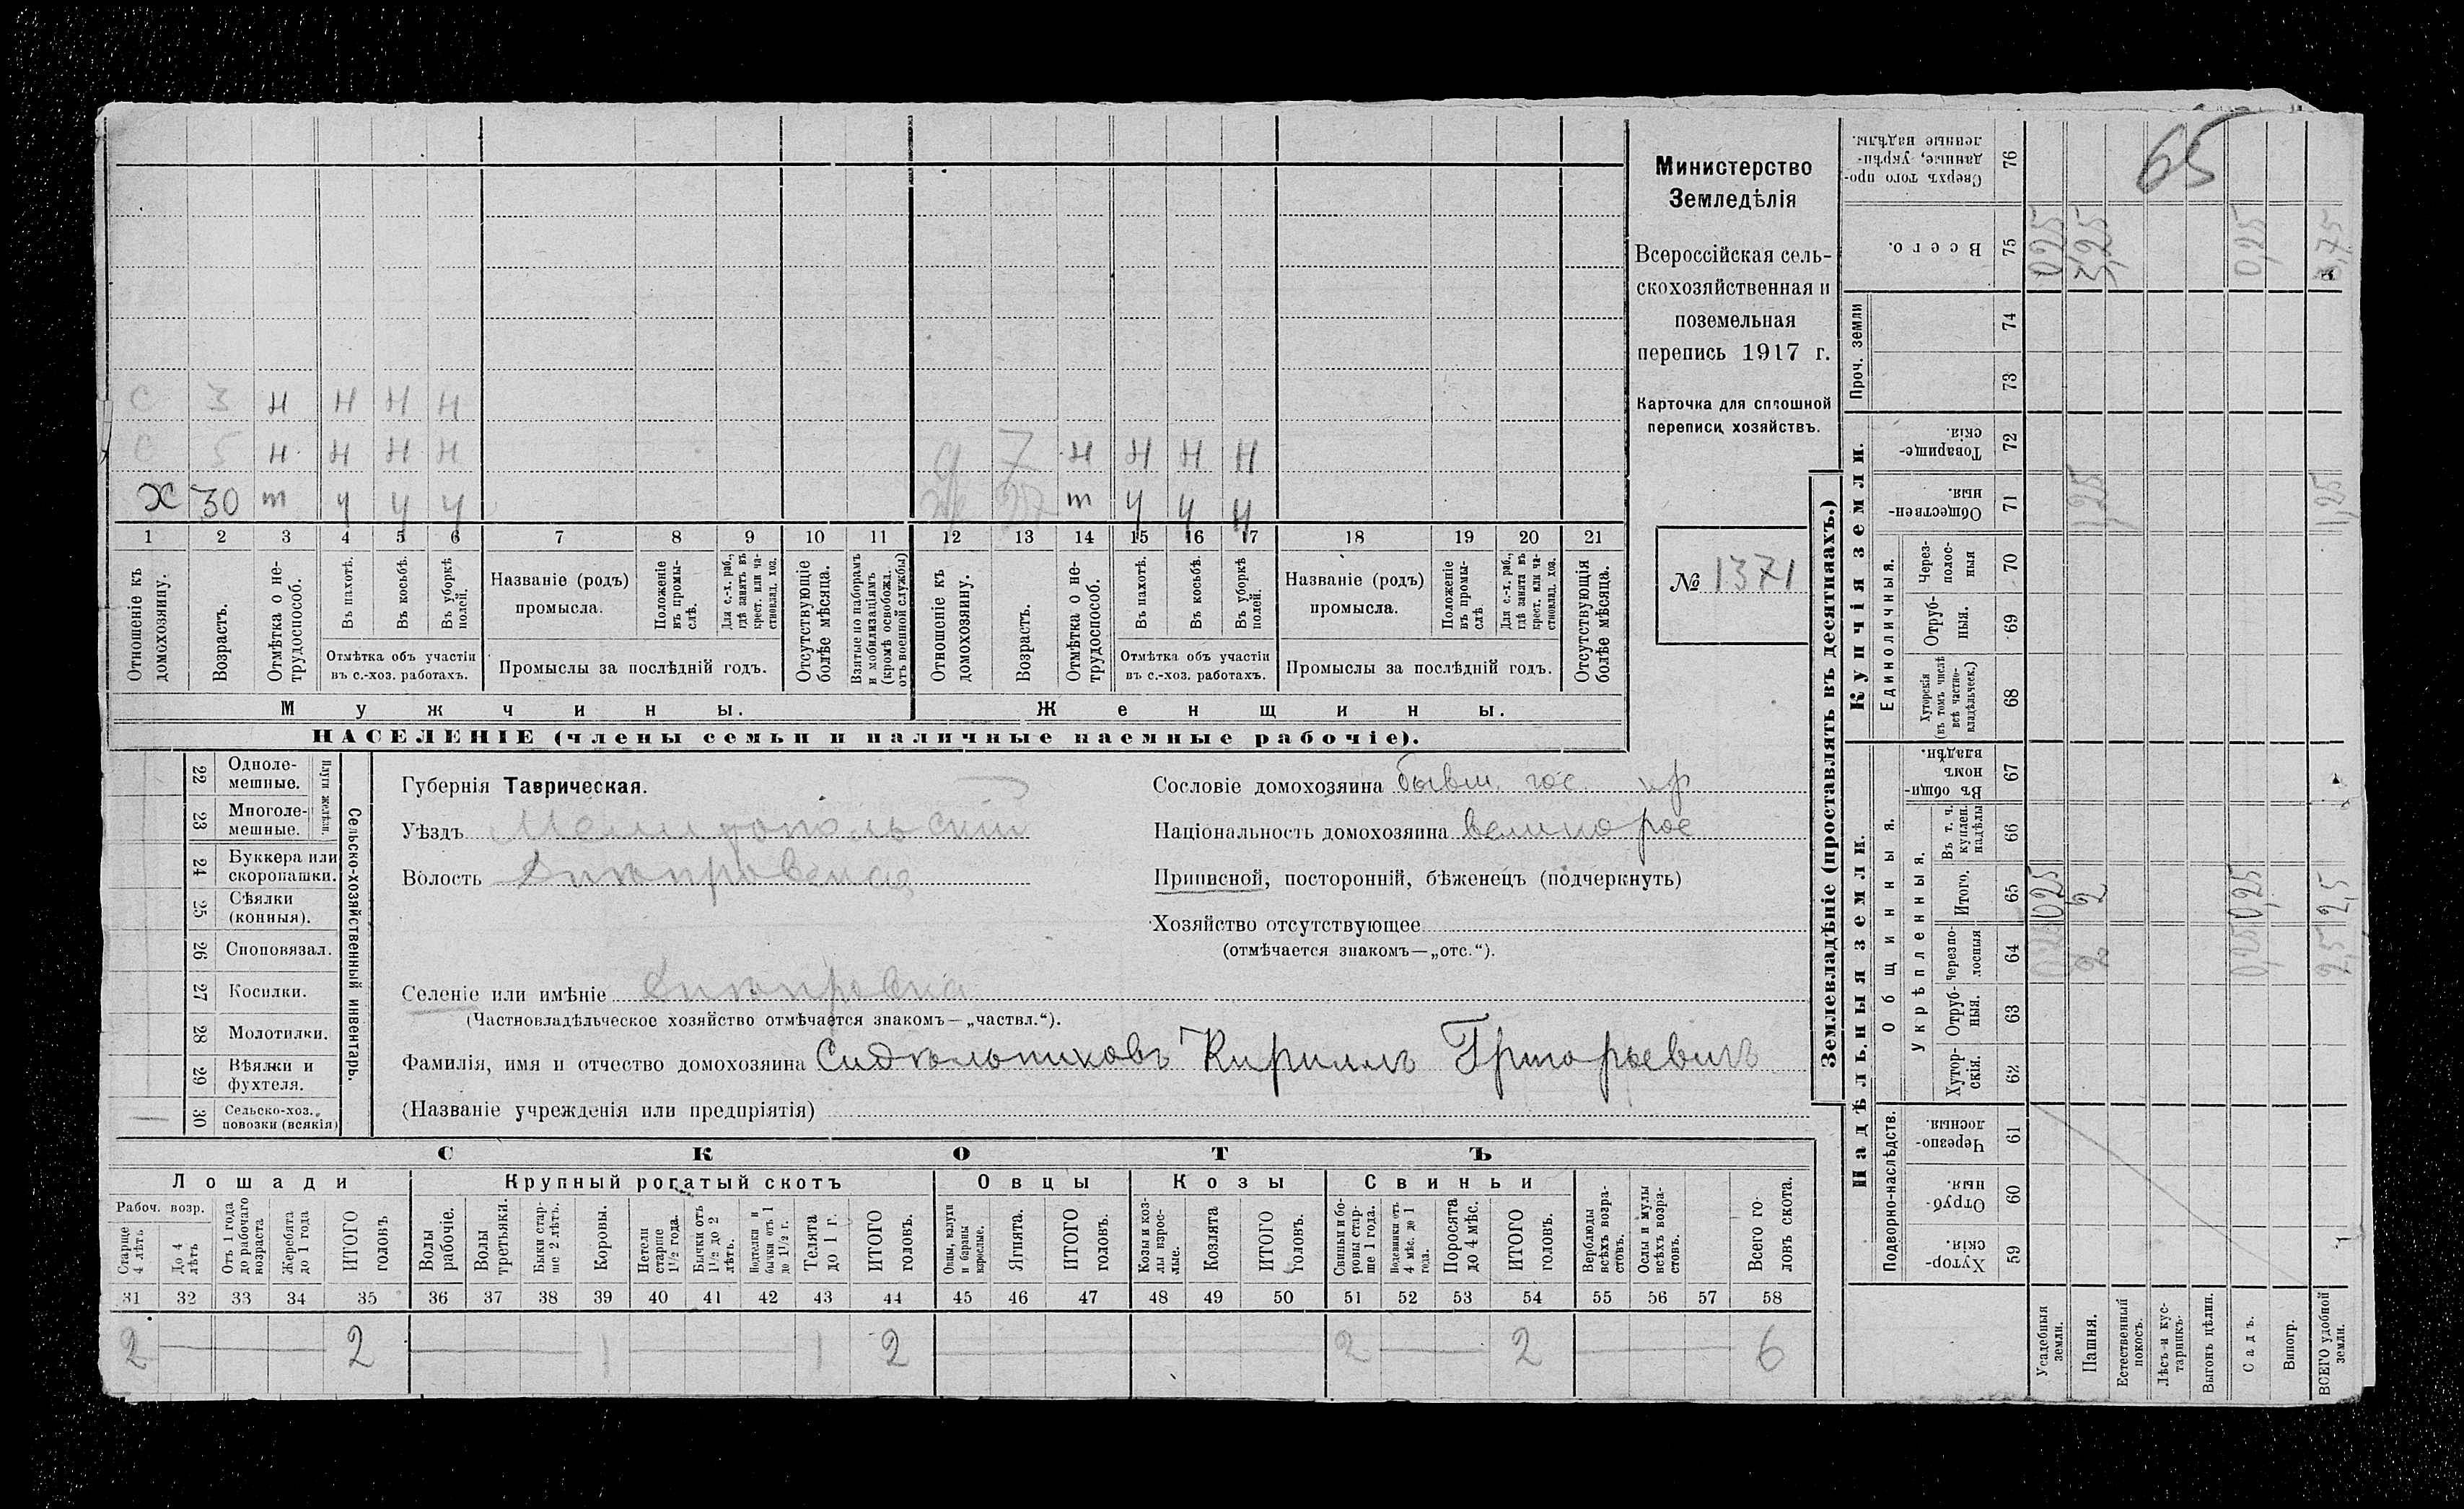 65
Министерство
Земледѣлія
Всероссійская сель-
скохозяйственная и
поземельная
перепись 1917 г.
Карточка для сплошной
переписи хозяйствъ.
№ 1371
С 3 н н н н
С 5 н н н н 7 н н н н
Х 30 т ч ч ч т ч ч н
1 2 3 4 5 6 7 8 9 10 11 12 13 14 15 16 17 18 19 20 21
Отношеніе къ домохозяину.
Возрастъ.
Отмѣтка о не-трудоспособ.
Въ пахотѣ.
Въ косьбѣ.
Въ уборкѣ полей.
Отмѣтка объ участіи
въ с.-хоз. работахъ.
Названіе (родъ)
промысла.
Положеніе въ промы-слѣ.
Для с.-х. раб., гдѣ занятъ въ крест. или ча-стновлад. хоз.
Промыслы за послѣдній годъ.
Отсутствующіе болѣе мѣсяца.
Взятые по наборамъ и мобилизаціямъ (кромѣ освобожд. отъ военной службы)
Отношеніе къ домохозяину.
Возрастъ.
Отмѣтка о не-трудоспособ.
Въ пахотѣ.
Въ косьбѣ.
Въ уборкѣ полей.
Отмѣтка объ участіи
въ с.-хоз. работахъ.
Названіе (родъ)
промысла.
Положеніе въ промы-слѣ.
Для с.-х. раб., гдѣ занята въ крест. или ча-стновлад. хоз.
Промыслы за послѣдній годъ.
Отсутствующія болѣе мѣсяца.
Мужчины. Женщины.
НАСЕЛЕНІЕ (члены семьи и наличные наемные рабочіе).
Сельско-хозяйственный инвентарь.
Плуги желѣзн.
22 Одноле-мешные.
23 Многоле-мешные.
24 Буккера или скоропашки.
25 Сѣялки (конныя).
26 Сноповязал.
27 Косилки.
28 Молотилки.
29 Вѣялки и фухтеля.
30 Сельско-хоз. повозки (всякія)
Губернія Таврическая.
Уѣздъ Мелитопольскій
Волость Днѣпровская
Селеніе или имѣніе Днѣпровка
(Частновладѣльческое хозяйство отмѣчается знакомъ—„частвл.“).
Фамилія, имя и отчество домохозяина Сидѣльниковъ Кириллъ Григорьевичъ
(Названіе учрежденія или предпріятія)
Сословіе домохозяина бывш. гос. кр
Національность домохозяина великорос
Приписной, посторонній, бѣженецъ (подчеркнуть)
Хозяйство отсутствующее
(отмѣчается знакомъ—„отс.“).
СКОТЪ
Лошади Крупный рогатый скотъ Овцы Козы Свиньи
Рабоч. возр.
Старше 4 лѣтъ
До 4 лѣтъ
Отъ 1 года до рабочаго возраста
Жеребята до 1 года
ИТОГО головъ
Волы рабочіе.
Волы третьяки.
Быки стар-ше 2 лѣтъ.
Коровы.
Нетели старше 1½ года.
Бычки отъ 1½ до 2 лѣтъ.
Подтелки и бычки отъ 1 до 1½ г.
Телята до 1 г.
ИТОГО головъ.
Овцы, валухи и бараны взрослые.
Ягнята.
ИТОГО головъ.
Козы и коз-лы взрос-лые.
Козлята
ИТОГО головъ.
Свиньи и бо-ровы стар-ше 1 года.
Подсвинки отъ 4 мѣс. до 1 года.
Поросята до 4 мѣс.
ИТОГО головъ.
Верблюды всѣхъ возра-стовъ.
Ослы и мулы всѣхъ возра-стовъ.
Всего го-ловъ скота.
31 32 33 34 35 36 37 38 39 40 41 42 43 44 45 46 47 48 49 50 51 52 53 54 55 56 57 58
2 2 1 1 2 2 2 6
Землевладѣніе (проставлять въ десятинахъ.)
Купчія земли.
Надѣльныя земли.
Проч. земли
Единоличныя.
Общинныя.
Укрѣпленныя.
Подворно-наслѣдств.
76 Сверхъ того про-данные, укрѣп-ленные надѣлы.
75 Всего. 0,25 3,25 0,25 3,75
74
73
72 Товарище-скія.
71 Обществен-ныя. 1,25 1,25
70 Через-полос-ныя
69 Отруб-ныя.
68 Хуторскія (въ томъ числѣ всѣ частно-владѣльческ.)
67 Въ общи-номъ владѣн.
66 Въ т. ч. куплен. надѣлы
65 Итого. 0,25 2 0,25 2,5
64 Черезпо-лосныя 0,25 2 0,25 2,5
63 Отруб-ныя.
62 Хутор-скія.
61 Черезпо-лосныя.
60 Отруб-ныя.
59 Хутор-скія.
Усадебныя земли.
Пашня.
Естественный покосъ.
Лѣсъ и кус-тарникъ.
Выгонъ цѣлин.
Садъ.
Виногр.
ВСЕГО удобной земли.